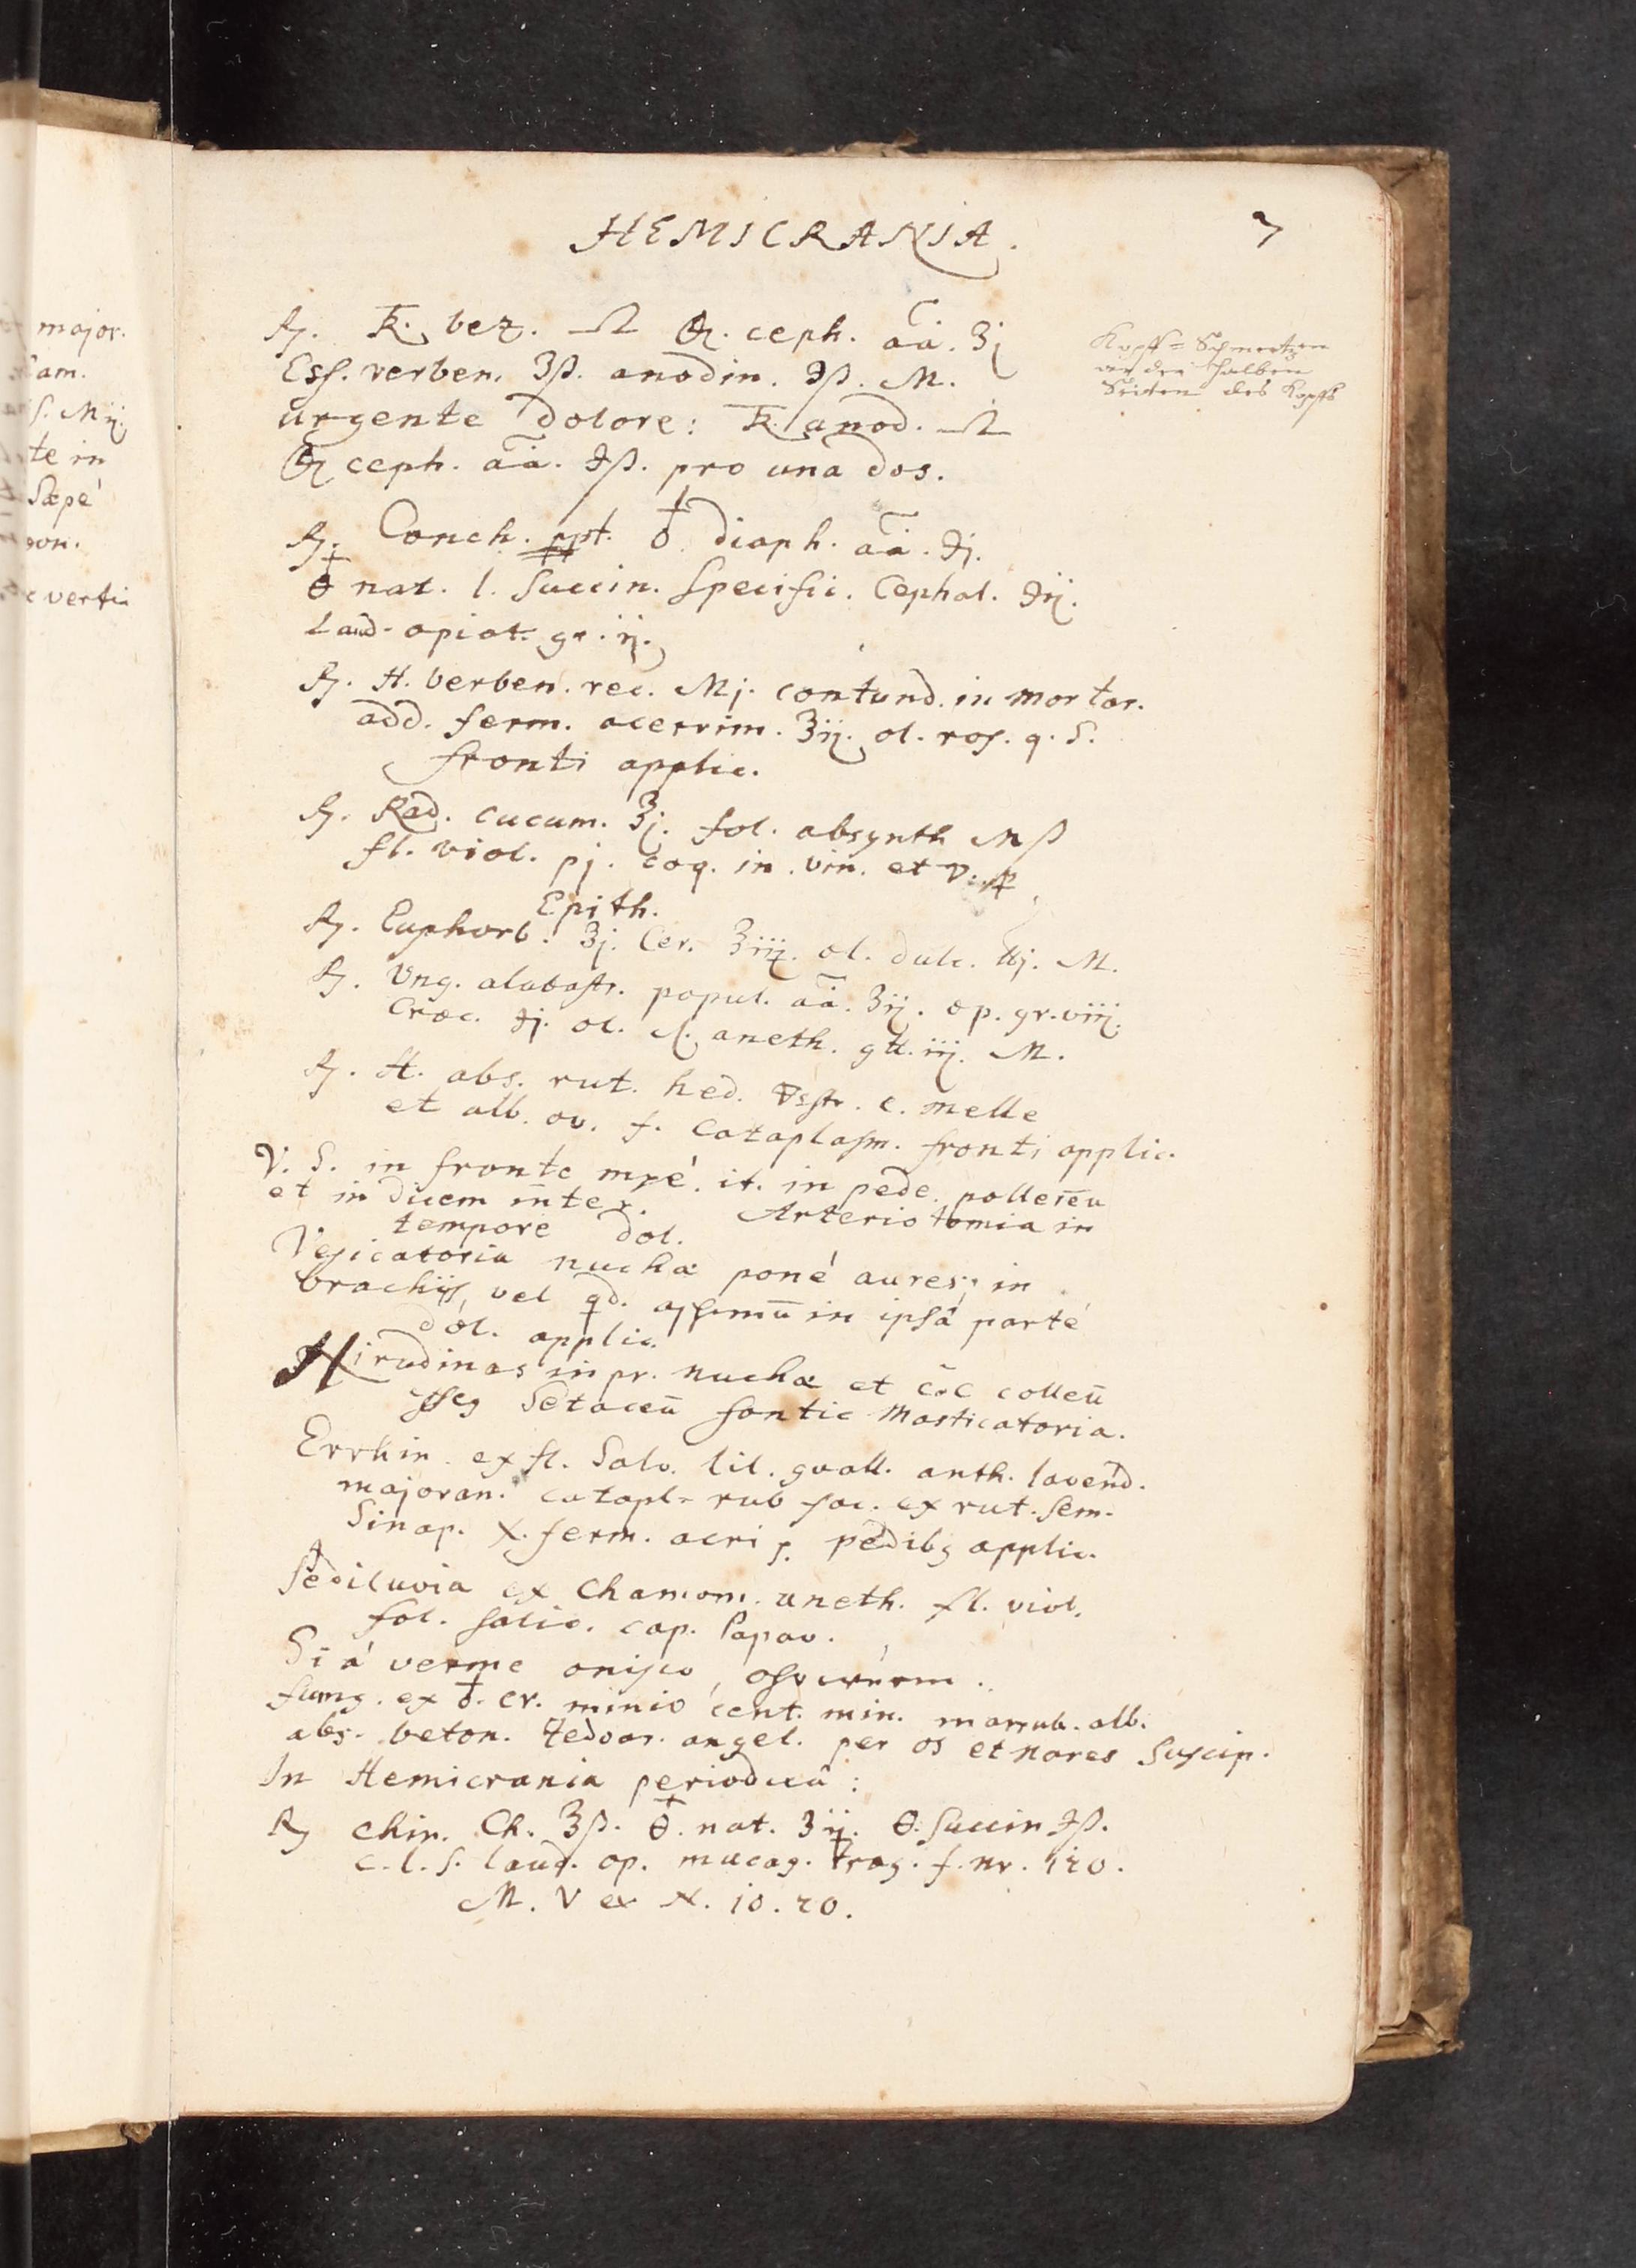 HEMICRANIA.
7
℞. Tr. bez. ceph. āā. ʒj
Ess. verben. ʒß. anodin. ℈ß. M.
urgente dolore: Tr. anod.
ceph. āā. ℈ß. pro una dos.
Kopff= Schmertzen
an der halben
Seiten des Kopffs
℞. Conch. ppt. ♁ diaph. āā. ℈j.
nat. l. succin. specific. Cephal. ℈ij.
Laud. opiat. gr. ij.
℞. H. verben. rec. Mj. contund. in mortar.
add. ferm. acerrim. ʒij. ol. ros. q. S.
fronti applic.
℞. Rad. cucum. ʒj. fol. absynth Mß
fl. viol. pj. coq. in. vin. et
Epith.
℞. Euphorb. ʒj. Cer. ʒiij. ol. dulc. ℔j. M.
℞. Ung. alabastr. popul. āā. ʒij. op. gr. viij.
Croc. ℈j. ol. aneth. gtt. iij. M.
℞. H. abs. rut. hed. c. melle
et alb. ov. f. Cataplasm. fronti applic.
V. S. in fronte mpé. it. in pede.
et in dicem inter. Arteriotomia in
tempore dol.
Vesicatoria nuchæ poné aures, in
brachijs, vel qd. in ipsâ parté
dol. applic.
Hirudines in pr. nuchæ et
Setaceū fontic Masticatoria.
Errhin. ex fl. Salv. lil. gvall. anth. lavend.
majoran. catapl= rub fac. ex rut. sem.
Sinap. X. ferm. acri pedibꝫ applic.
Pediluvia ex Chamom. aneth. fl. viol.
fol. salic. cap. Papav.
Si á verme onisco,
ex ♁. cr. minio cent. min. marrub. alb.
abs. beton. Zedoar. angel. per os et nares suscip.
In Hemicrania periodicâ:
℞ Chin. Ch. ʒß. nat. ʒij. succin ℈ß.
c. l. s. laud. op. mucag. trag. f. nr. 120.
M. V ex N. 10. 20.
major.
am.
S. Mij.
te in
Sæpé
verti